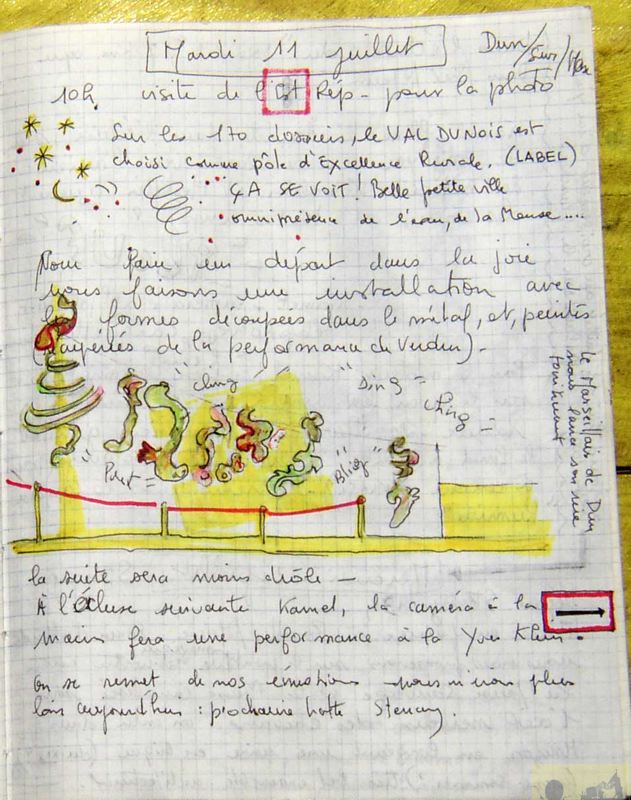 Mardi 11 juillet
Dun/Sur/Meuse
10h visite de l'Est Rép- pour la photo
Sur les 170 dossiers, le VAL DUNOIS est
choisi comme pôle d'Excellence Rurale. (LABEL)
ÇA SE VOIT! Belle petite ville
omniprésence de l'eau, de la Meuse....
Pour faire un départ dans la joie
nous faisons une installation avec
les formes découpées dans le métal, et, peintes
de la performance de Verdun).
"cling
"Ding =
Ching =
"
Puet =
"Bling"
le Marseillais de Dun
nous lance son rire
tonitruant
la suite sera moins drôle —
À l'écluse suivante Kamel, la caméra à la
main fera une performance à la Yves Klein.
On se remet de nos émotions nous n'irons plus
loin aujourd'hui : prochaine halte Stenay.